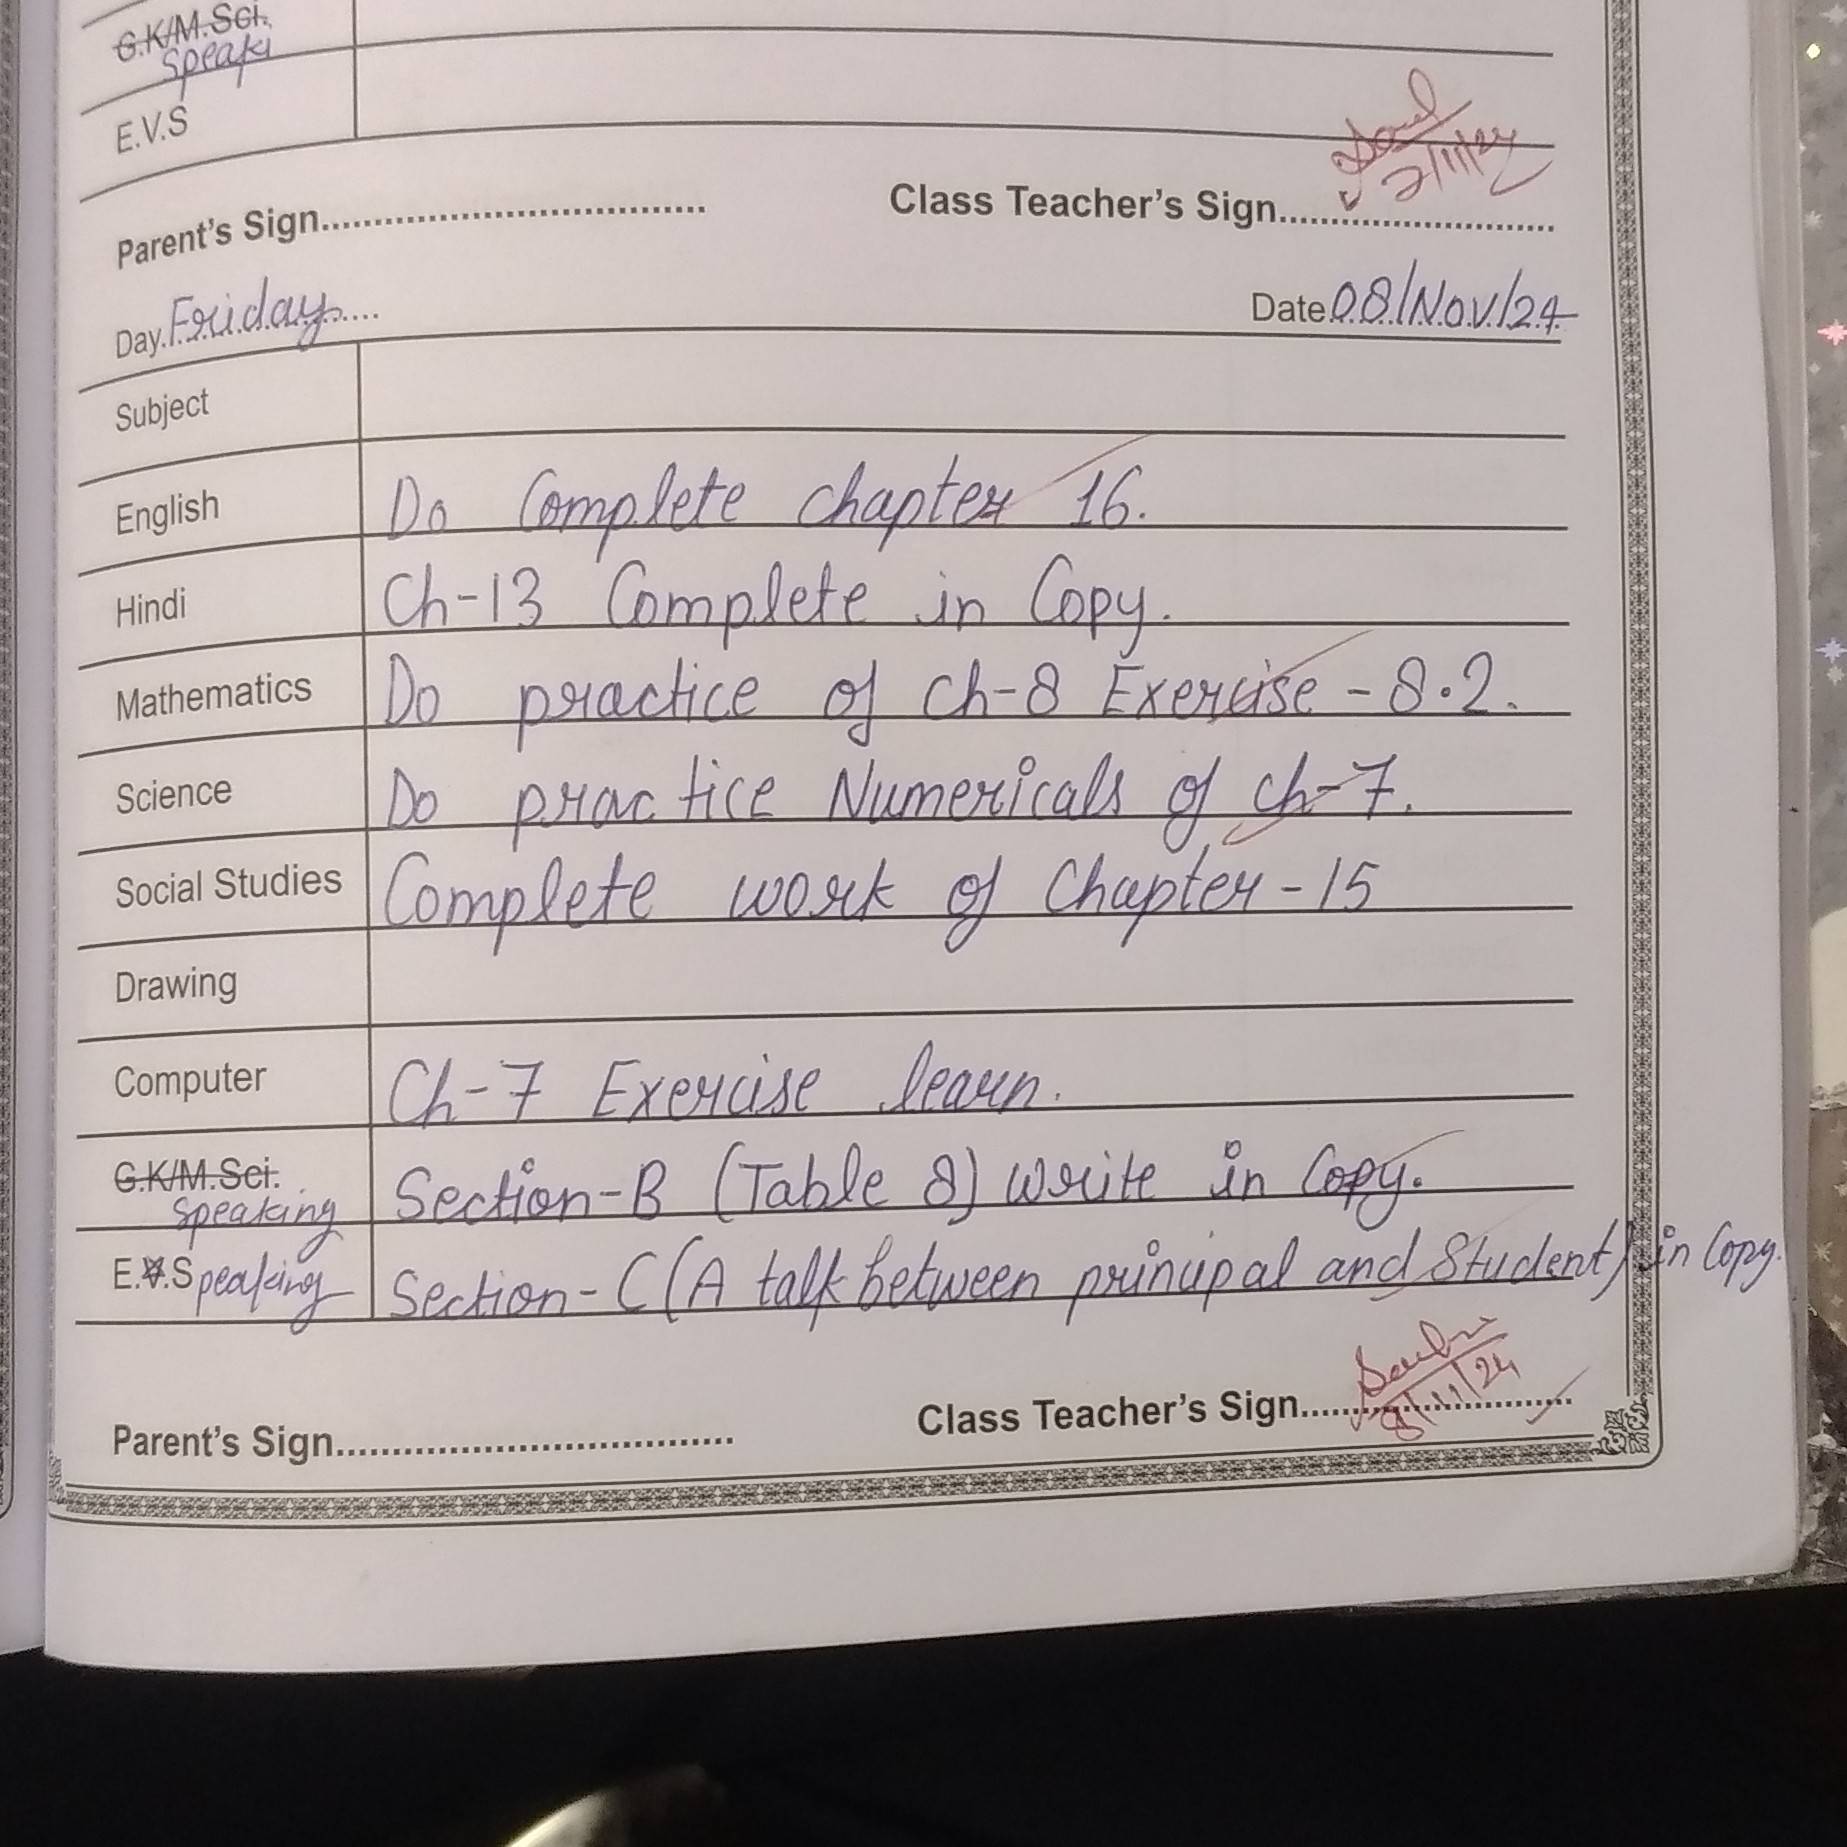 G.K/M.Sci.
Speaki
E.V.S
Parent's Sign.................................. Class Teacher's Sign..............................
Day Friday Date 08/Nov/24
Subject
English Do Complete chapter 16.
Hindi Ch-13 Complete in Copy.
Mathematics Do practice of Ch-8 Exercise - 8.2.
Science Do practice Numericals of ch-7.
Social Studies Complete work of Chapter-15
Drawing
Computer Ch-7 Exercise learn.
G.K/M.Sci. Section-B (Table 8) Write in Copy.
Speaking
E.V.Speaking Section-C (A talk between principal and Student) in Copy.
8/11/24
Parent's Sign.................................. Class Teacher's Sign..............................